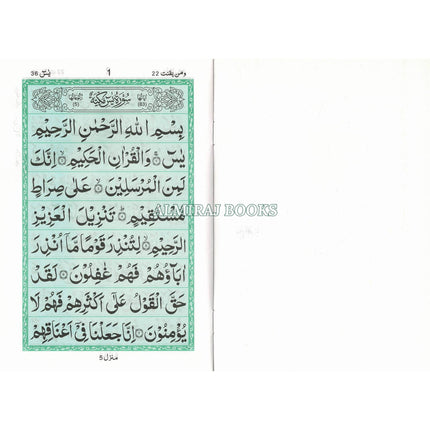 يٰسٓ 36
1
ومن يقنت 22
سُوْرَةُ يٰسٓ مَكِّيَّةٌ
بِسْمِ اللّٰهِ الرَّحْمٰنِ الرَّحِيْمِ
يٰسٓ ۚ وَالْقُرْاٰنِ الْحَكِيْمِ ۙ اِنَّكَ
لَمِنَ الْمُرْسَلِيْنَ ۙ عَلٰى صِرَاطٍ
مُّسْتَقِيْمٍ ؕ تَنْزِيْلَ الْعَزِيْزِ
ALMIRAJ BOOKS
الرَّحِيْمِ ۙ لِتُنْذِرَ قَوْمًا مَّاۤ اُنْذِرَ
اٰبَآؤُهُمْ فَهُمْ غٰفِلُوْنَ ۞ لَقَدْ
حَقَّ الْقَوْلُ عَلٰۤى اَكْثَرِهِمْ فَهُمْ لَا
يُؤْمِنُوْنَ ۞ اِنَّا جَعَلْنَا فِيْۤ اَعْنَاقِهِمْ
مَنْزِل ٥